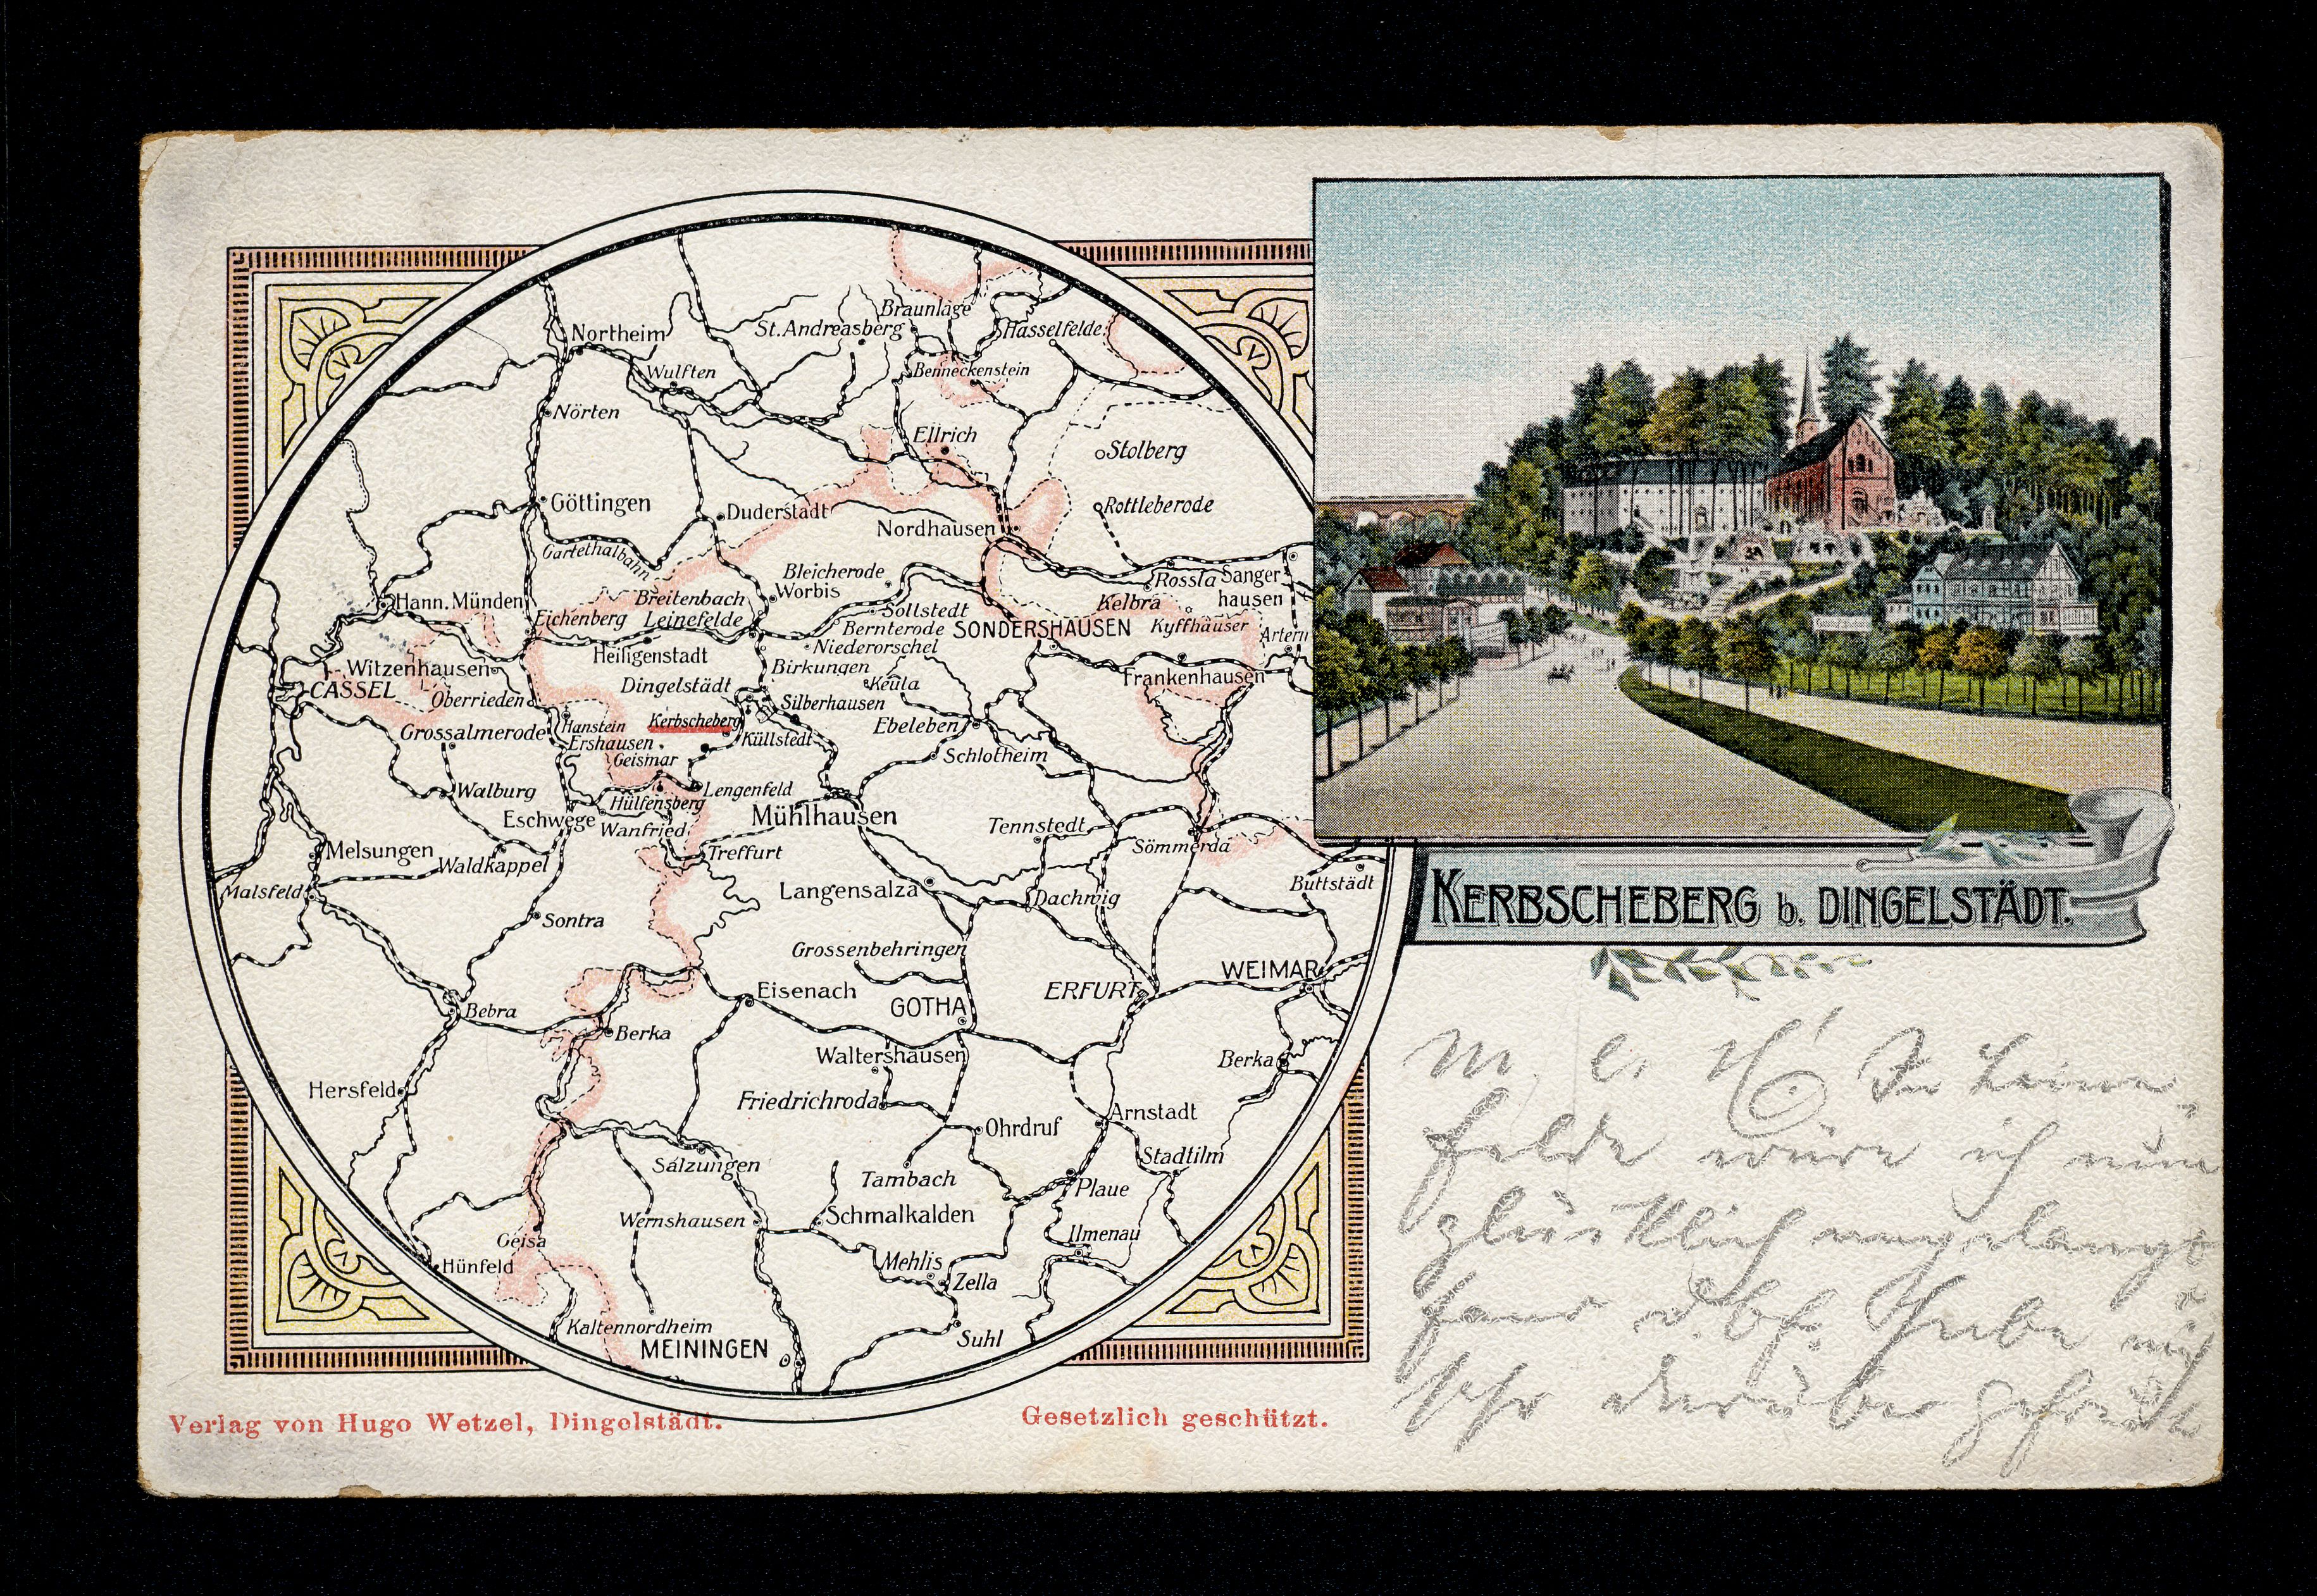 Braunlage
St. Andreasberg
Hasselfelde
Northeim
Wulften
Benneckenstein
Nörten
Ellrich
Stolberg
Göttingen
Duderstadt
Rottleberode
Nordhausen
Gartethalbahn
Bleicherode
Rossla
Sanger-
hausen
Worbis
Hann. Münden
Breitenbach
Sollstedt
Kelbra
Eichenberg
Leinefelde
Bernterode
SONDERSHAUSEN
Kyffhäuser
Artern
Heiligenstadt
Niederorschel
Witzenhausen
Birkungen
CASSEL
Dingelstädt
Keula
Frankenhausen
Oberrieden
Silberhausen
Hanstein
Kerbscheberg
Ebeleben
Grossalmerode
Ershausen
Küllstedt
Geismar
Schlotheim
Walburg
Lengenfeld
Hülfensberg
Eschwege
Wanfried
Mühlhausen
Tennstedt
Sömmerda
Melsungen
Waldkappel
Treffurt
Malsfeld
Langensalza
Dachwig
Buttstädt
Sontra
Grossenbehringen
WEIMAR
Eisenach
GOTHA
ERFURT
Bebra
Berka
Waltershausen
Berka
Hersfeld
Friedrichroda
Arnstadt
Ohrdruf
Salzungen
Stadtilm
Tambach
Plaue
Wernshausen
Schmalkalden
Ilmenau
Geisa
Hünfeld
Mehlis
Zella
Kaltennordheim
MEININGEN
Suhl
KERBSCHEBERG b. DINGELSTÄDT.
M. l. H! In Leine-
felde wäre ich nun
glücklich angelangt
Habe mich
sehr darüber gefreut
Verlag von Hugo Wetzel, Dingelstädt.
Gesetzlich geschützt.